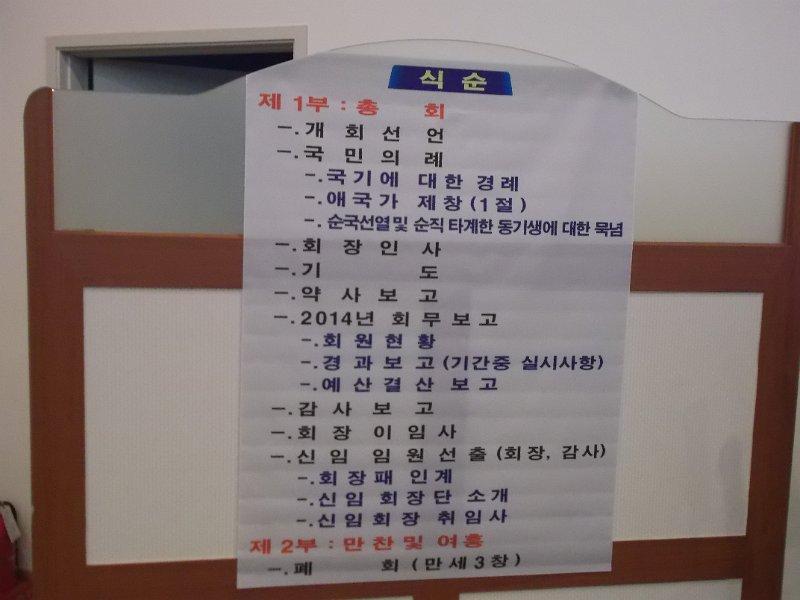 식 순
제 1부 : 총 회
-. 개 회 선 언
-. 국 민 의 례
-. 국 기 에 대 한 경 례
-. 애 국 가 제 창 (1 절)
-. 순국선열및 순직 타계한 동기생에 대한 묵념
-. 회 장 인 사
-. 기 도
-. 약 사 보 고
-. 2014년 회 무 보 고
-. 회 원 현 황
-. 경 과 보 고 (기간중 실시사항)
-. 예 산 결 산 보 고
-. 감 사 보 고
-. 회 장 이 임 사
-. 신 임 임 원 선 출 (회장, 감사)
-. 회 장 패 인 계
-. 신 임 회 장 단 소 개
-. 신 임 회 장 취 임 사
제 2부 : 만 찬 및 여 흥
-. 폐 회 (만 세 3 창)